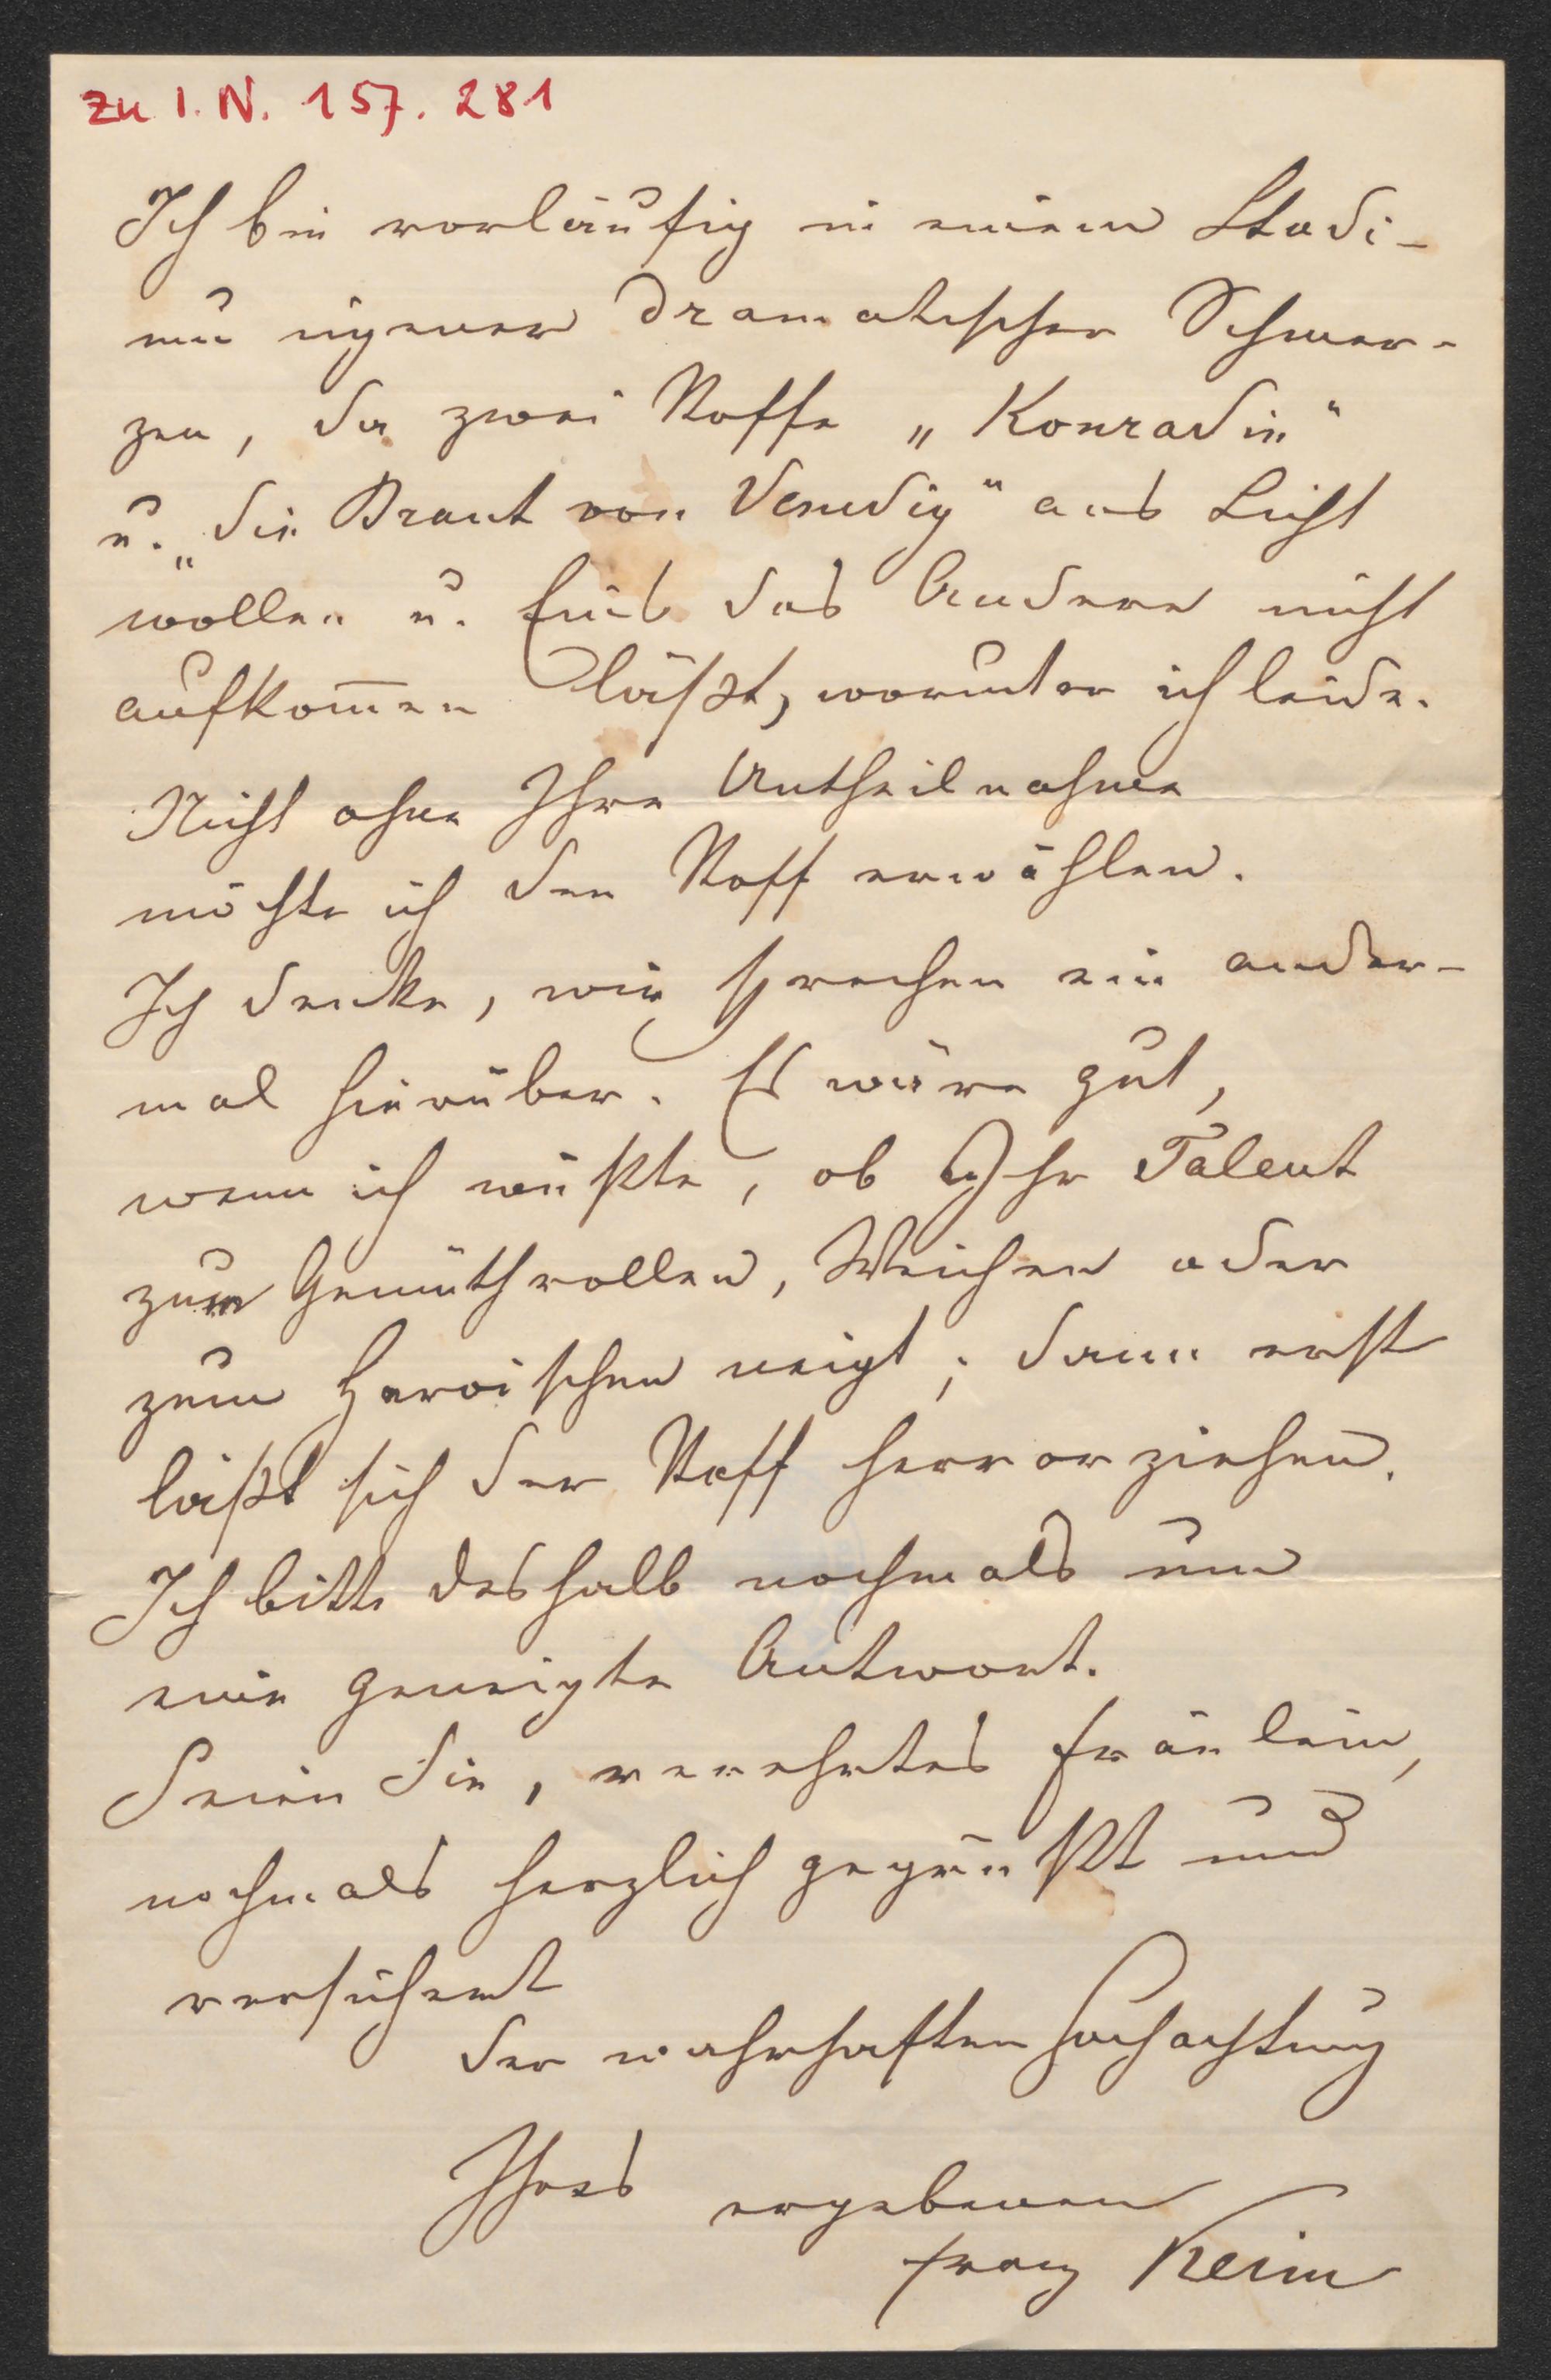 zu I.N. 157.281
Ich bin vorläufig in einem Stadi-
um eigener dramatischer Schmer-
zen, da zwei Stoffe „Konradin"
u. „die Braut von Venedig" ans Licht
wollen u. Eins das Andere nicht
aufkom̅en läßt, worunter ich leide.
Nicht ohne Ihre Antheilnahme
möchte ich den Stoff erwählen.
Ich denke, wir sprechen ein ander-
mal hierüber. Es wäre gut,
wenn ich wüßte, ob Ihr Talent
zum Gemüthvollen, Weichen oder
zum Heroischen neigt; dann erst
läßt sich der Stoff hervorziehen.
Ich bitte deshalb nochmals um
eine geneigte Antwort.
Seien Sie, verehrtes Fräulein,
nochmals herzlich gegrüßt und
versichert
der wahrhaften Hochachtung
Ihres ergebenen
Franz Keim